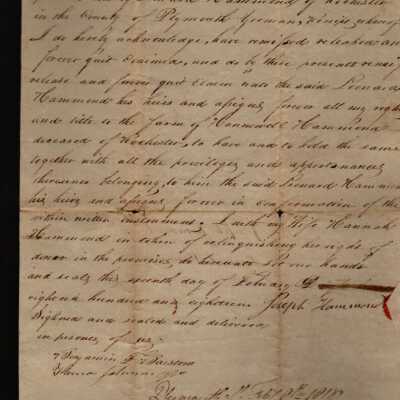 Hammond of Rochester
in the County of Plymouth Yeoman, Receipt whereof
I do hereby acknowledge, have remised released and
forever quit Claimed, and do by these presents remise
release and forever quit Claim unto the said Leonard
Hammond his heirs and assigns forever all my right
and title to the farm of Hunnewell Hammond
deceased of Rochester, to have and to hold the same
together with all the privileges and appurtenances
thereunto belonging to him the said Leonard Hammond
his heirs and assigns forever in confirmation of the
within written instrument. I with my Wife Hannah
Hammond in token of relinquishing her right of
dower in the premises do hereunto set our hands
and seals this seventh day of February
eighteen hundred and eighteen Joseph Hammond
Signed and sealed and delivered
in presence of us
Benjamin
Plym